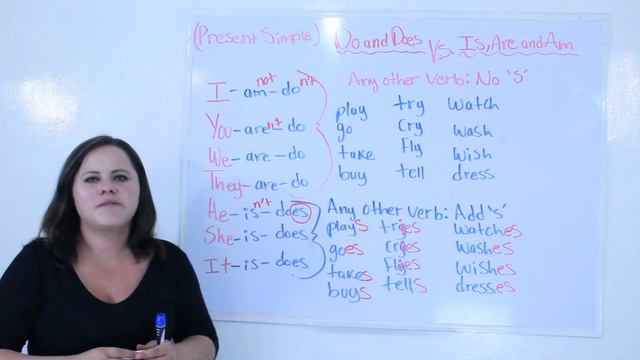 (Present Simple) Do and Does Vs. Is, Are and Am
I - am not - do n't
You - are n't - do
We - are - do
They - are - do
He - is n't - does
She - is - does
It - is - does
Any other verb: No 's'
play try watch
go cry wash
take fly wish
buy tell dress
Any other verb: Add 's'
plays tryies watches
goes cryies washes
takes flyies wishes
buys tells dresses